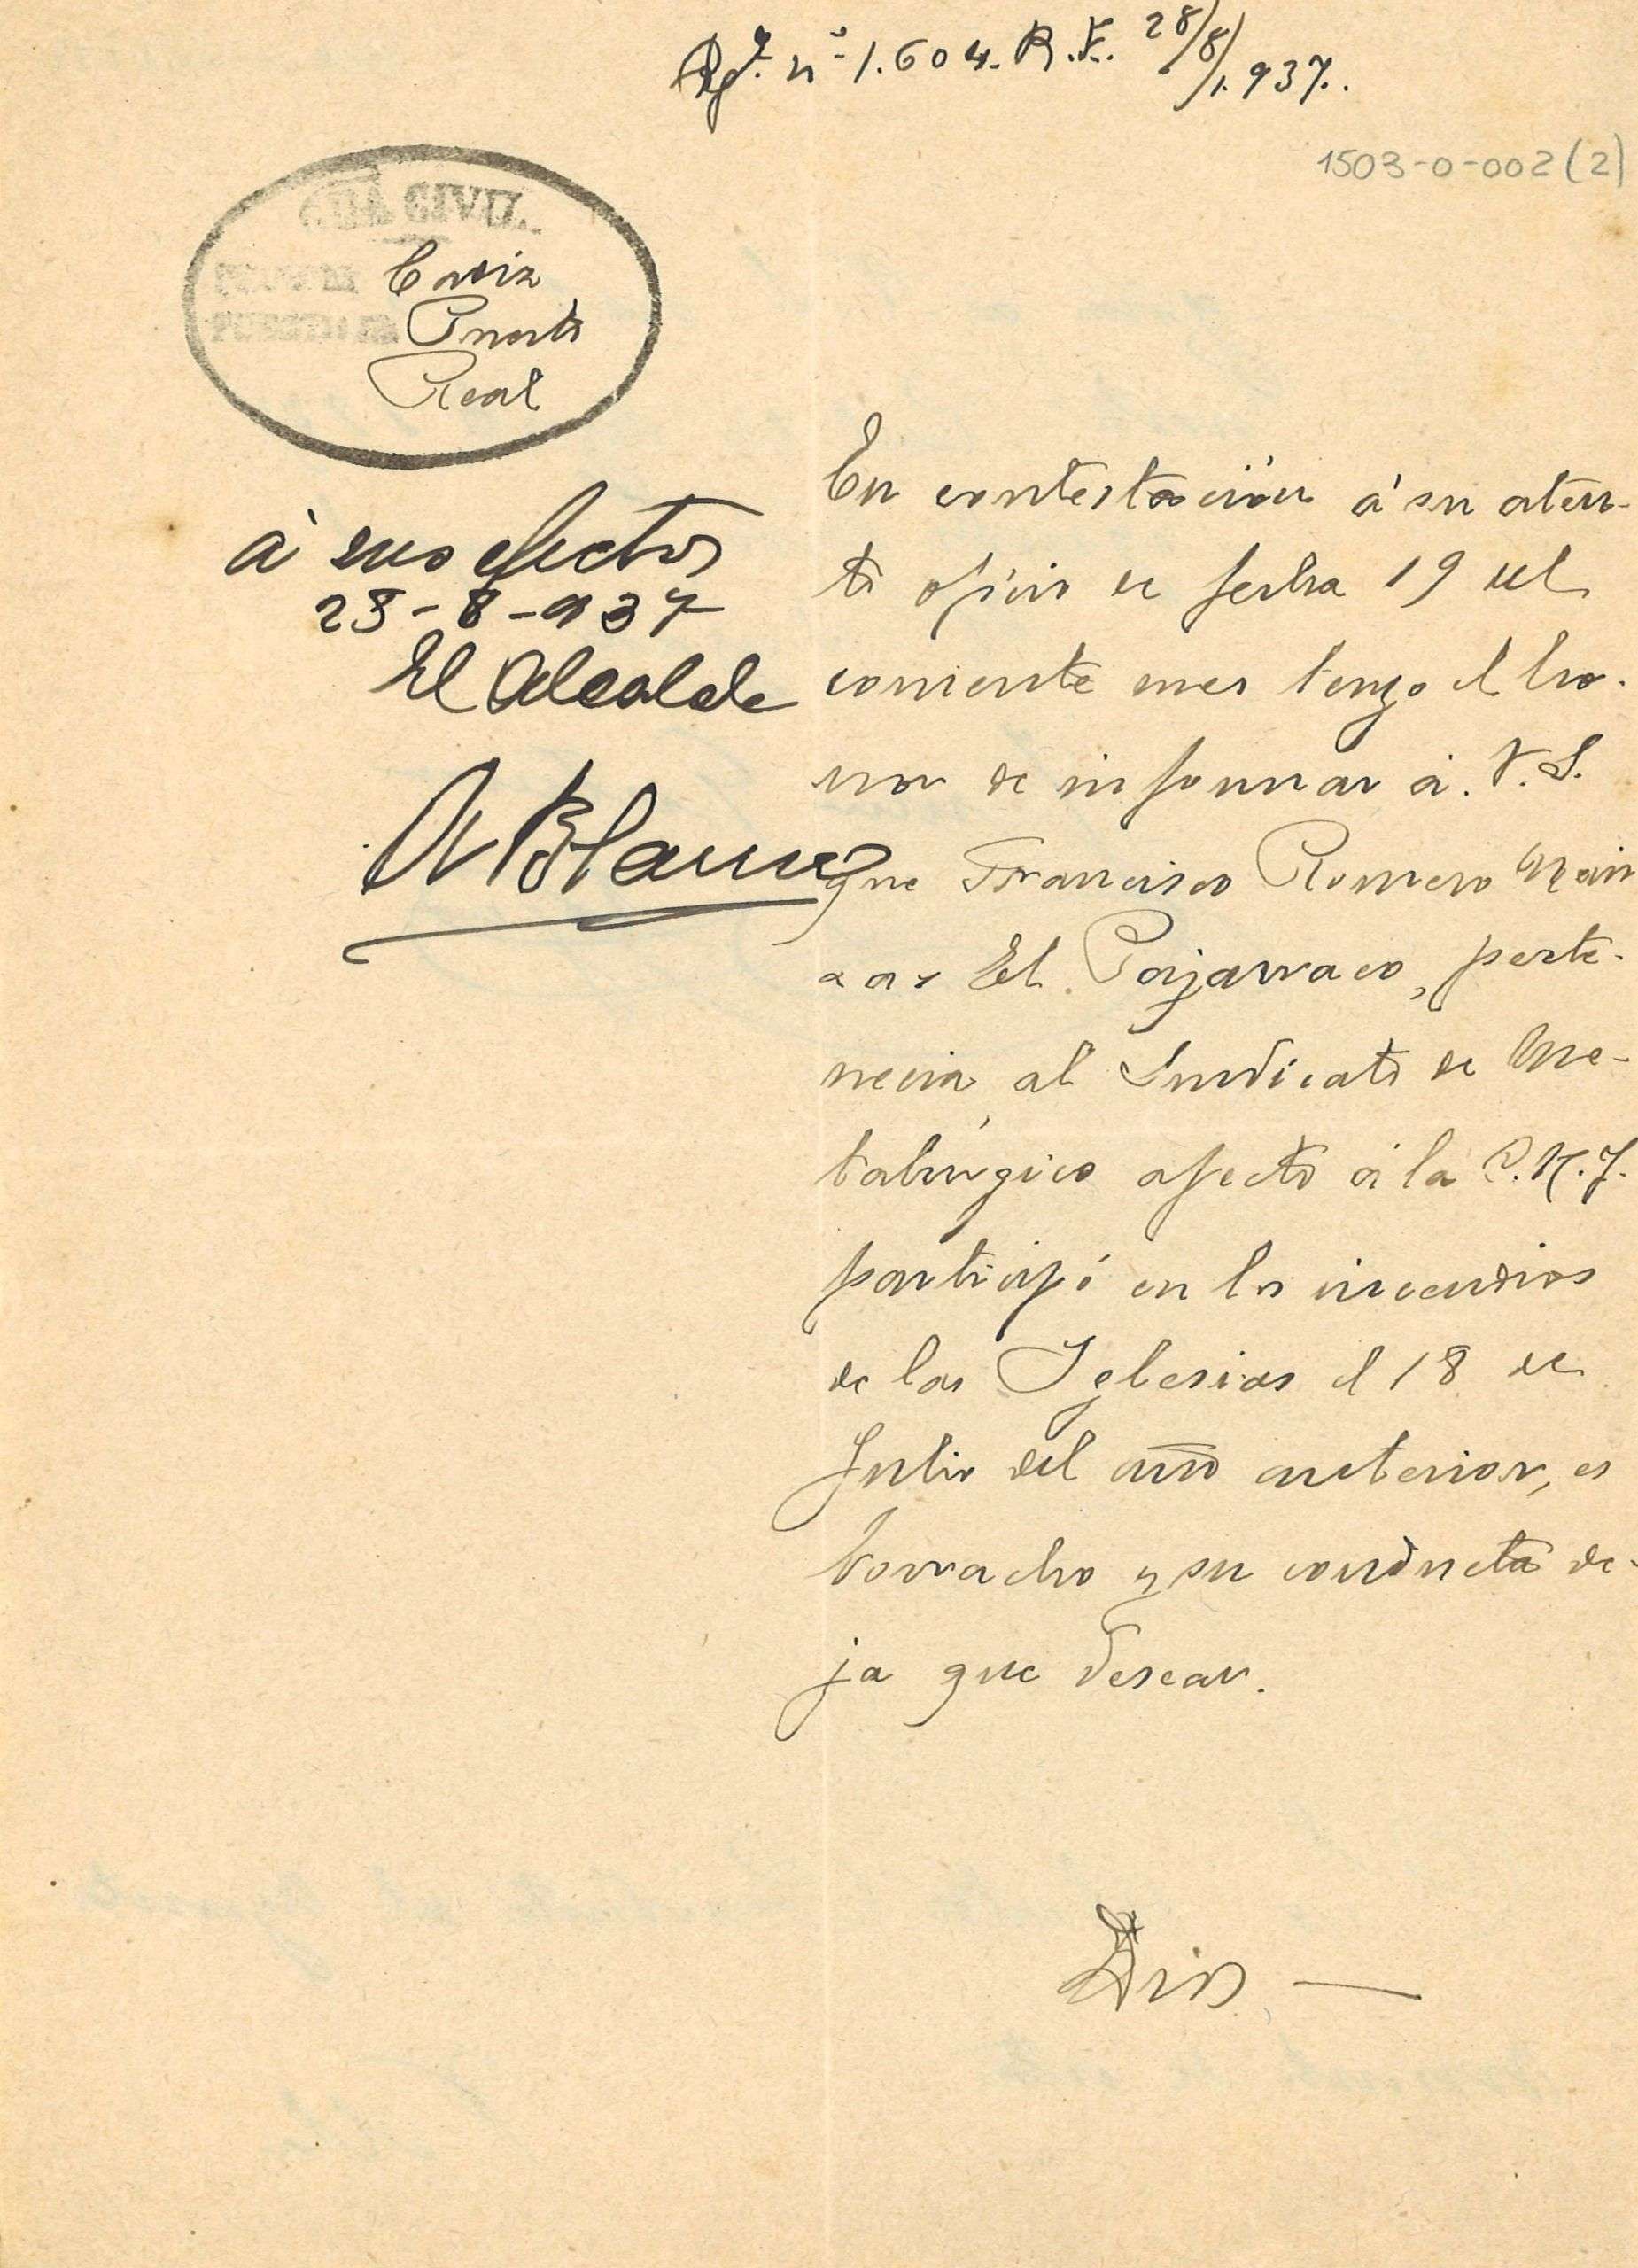 Rgº. nº 1.604. R.E. 28/8/1.937.
1503-0-002(2)
GUA CIVIL
Cadiz
Puerto
Real
à sus efectos
28-8-937
El Alcalde
En contestación á su aten-
to oficio de fecha 19 del
corriente mes tengo el ho-
nor de informar á. V.S.
que Francisco Romero
a as El Pajarraco, perte-
necia al Sindicato de Me-
talúrgico afecto á la C.N.T.
participó en los incendios
de las Iglesias el 18 de
Julio del año anterior, es
borracho y su conducta de-
ja que desear.
Dios —